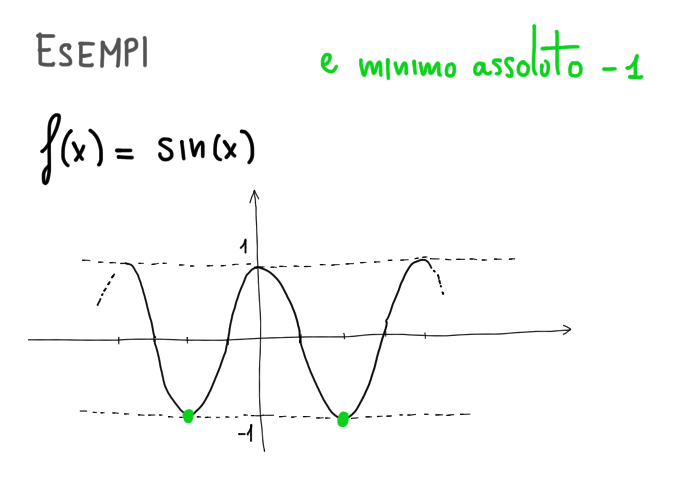 ESEMPI
e minimo assoluto -1
f(x) = sin(x)
1
-1